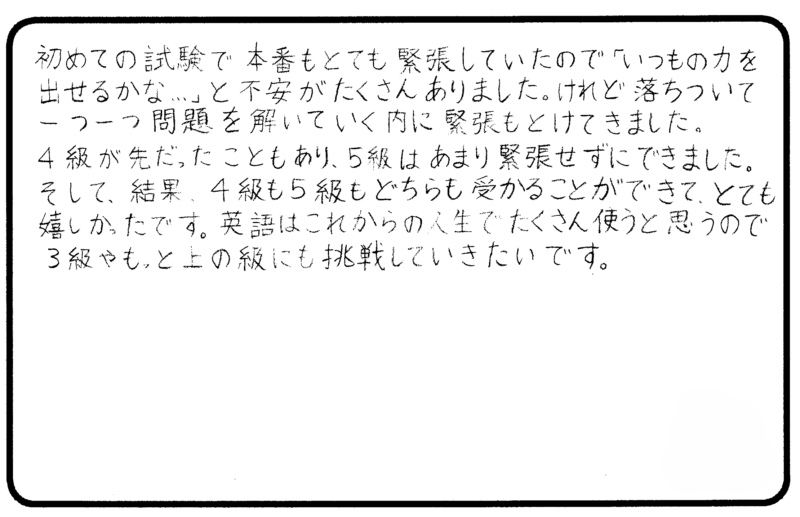 初めての試験で本番もとても緊張していたので「いつもの力を
出せるかな…」と不安がたくさんありました。けれど落ちついて
一つ一つ問題を解いていく内に緊張もとけてきました。
4級が先だったこともあり、5級はあまり緊張せずにできました。
そして、結果、4級も5級もどちらも受かることができて、とても
嬉しかったです。英語はこれからの人生でたくさん使うと思うので
3級やもっと上の級にも挑戦していきたいです。